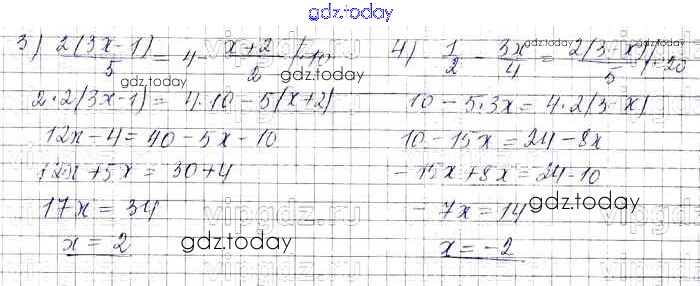 gdz.today
3) 2(3x-1)/5 = 4 - (x+2)/2 /·10
2·2(3x-1) = 4·10 - 5(x+2)
12x - 4 = 40 - 5x - 10
12x + 5x = 30 + 4
17x = 34
x = 2
4) 1/2 - 3x/4 = 2(3-x)/5 /·20
10 - 5·3x = 4·2(3-x)
10 - 15x = 24 - 8x
-15x + 8x = 24 - 10
-7x = 14
x = -2
gdz.today
gdz.today
gdz.today
gdz.today
gdz.today
gdz.today
vipgdz.ru
vipgdz.ru